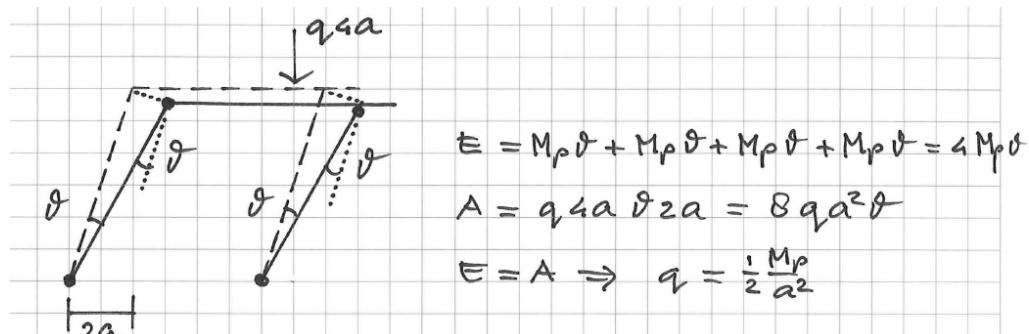 q4a
ϑ
ϑ
ϑ
ϑ
2a
E = Mpϑ + Mpϑ + Mpϑ + Mpϑ = 4Mpϑ
A = q4a ϑ2a = 8qa²ϑ
E = A ⟹ q = 1/2 Mp/a²